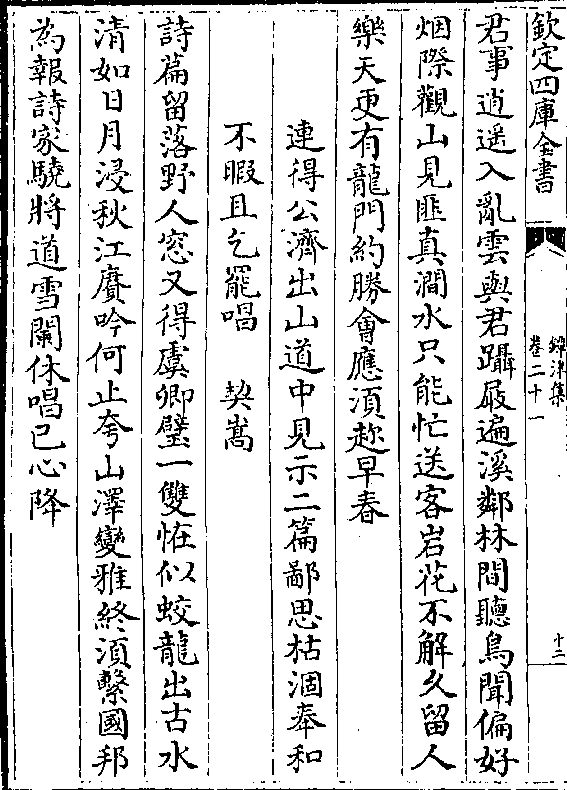 欽定四庫全書
鐔津集
卷二十一
十二
君事逍遥入亂雲與君躡屐遍溪鄰林間聽鳥聞偏好
烟際觀山見匪真澗水只能忙送客岩花不解久留人
樂天更有龍門約勝會應湏趂早春
連得公濟出山道中見示二篇鄙思枯涸奉和
不暇且乞罷唱　契嵩
詩篇留落野人窓又得虞卿璧一雙恠似蛟龍出古水
清如日月浸秋江賡吟何止夸山澤變雅終湏繫國邦
為報詩家驍將道雪闌休唱已心降